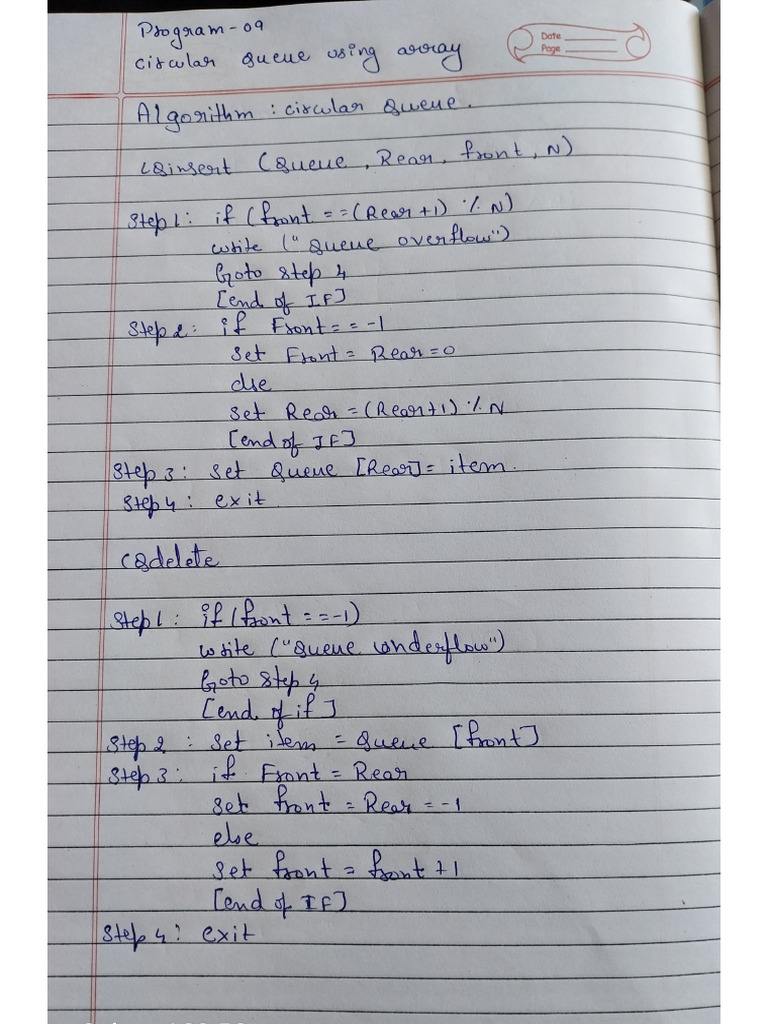 Program-09
circular Queue using array
Date
Page
Algorithm : circular Queue.
CQinsert (Queue, Rear, front, N)
Step 1: if (front == (Rear+1) % N)
write ("Queue overflow")
Goto step 4
[end of IF]
Step 2: if Front == -1
Set Front = Rear = 0
else
Set Rear = (Rear+1) % N
[end of IF]
Step 3: Set Queue [Rear] = item.
Step 4: exit
CQdelete
Step 1: if (front == -1)
write ("Queue underflow")
Goto Step 4
[end of if]
Step 2 : Set item = Queue [front]
Step 3: if Front = Rear
Set front = Rear = -1
else
Set front = front +1
[end of IF]
Step 4: exit